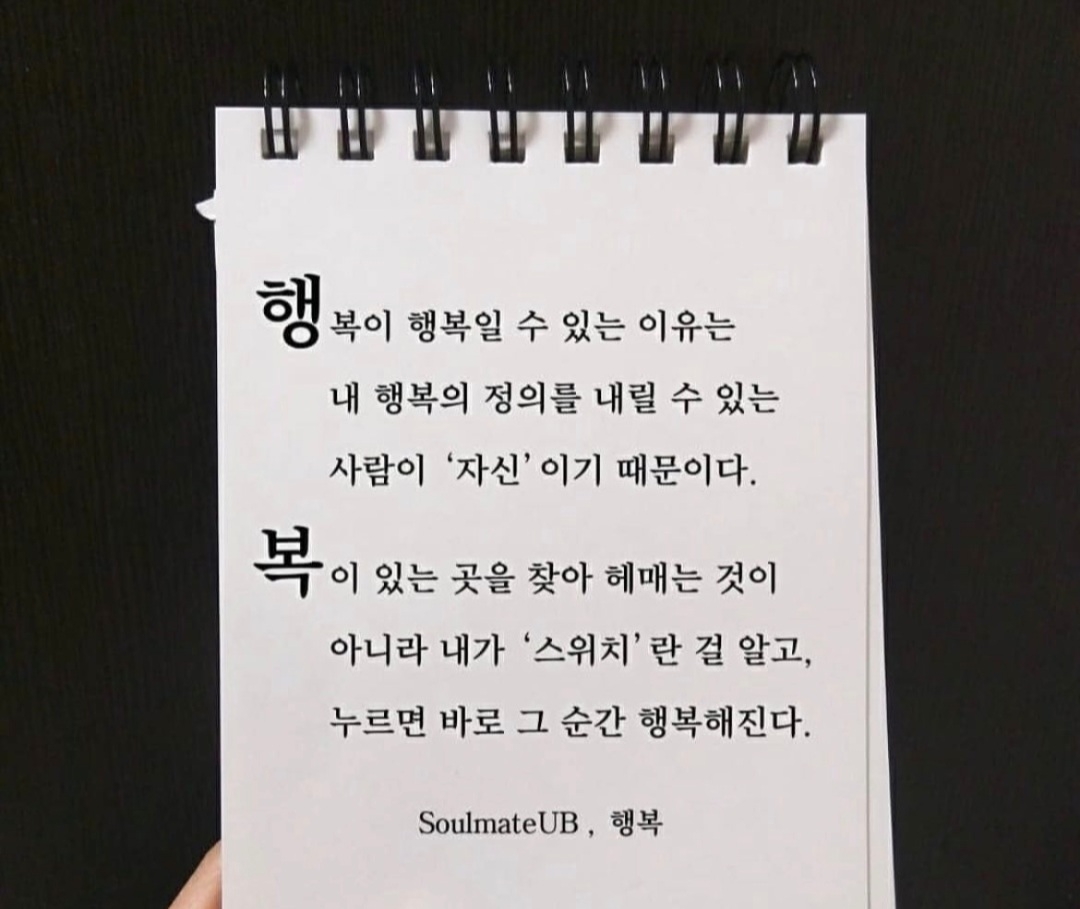 행복이 행복일 수 있는 이유는
내 행복의 정의를 내릴 수 있는
사람이 ‘자신’이기 때문이다.
복이 있는 곳을 찾아 헤매는 것이
아니라 내가 ‘스위치’란 걸 알고,
누르면 바로 그 순간 행복해진다.
SoulmateUB , 행복